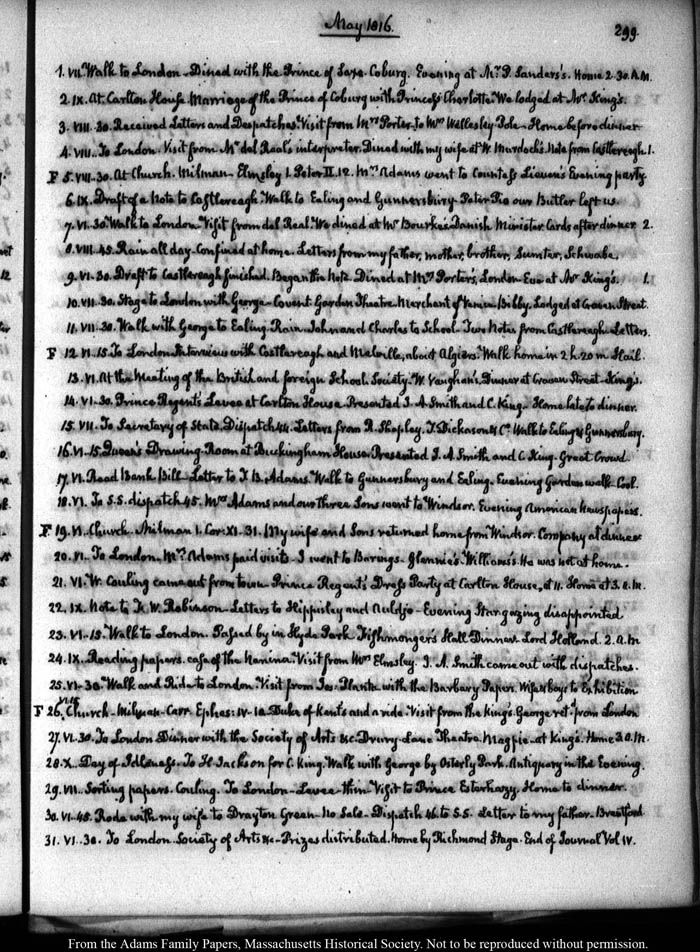 May 1816.
299.
1. VII. Walk to London. Dined with the Prince of Saxe-Coburg. Evening at Mr. P. Sanders's. Home 2.30. A.M.
2. IX. At Carlton House Marriage of the Prince of Coburg with Princess Charlotte. We lodged at Mr King's.
3. VIII. 30. Received Letters and Despatches. Visit from Mrs Porter, to Mrs Wellesley Pole. Home before dinner
4. VIII. To London. Visit from Mr del Real's interpreter. Dined with my wife at W. Murdock's. Note from Castlereagh. 1.
F 5. VIII-30. At Church. Milman. Elmsley 1. Peter II. 12. Mrs Adams went to Countess Lieven's Evening party.
6. IX. Draft of a Note to Castlereagh. Walk to Ealing and Gunnersbury. Peter Pio our Butler left us.
7. VI. 30. Walk to London. Visit from del Real. We dined at Mr Bourke's Danish Minister. Cards after dinner 2.
8. VIII. 45. Rain all day. Confined at home. Letters from my father, mother, brother, Sumter, Schwabe,
9. VI-30. Draft to Castlereagh finished. Began the Note. Dined at Mrs Porter's, London. Eve at Mr King's. 1.
10. VII. 30. Stage to London with George. Covent Garden Theatre. Merchant of Venice. Bibby. Lodged at Craven Street.
11. VII. 30. Walk with George to Ealing. Rain. John and Charles to School. Two Notes from Castlereagh. Letters.
F 12. VI. 15. To London. Interview with Castlereagh and Melville, about Algiers. Walk home in 2 h. 20 m. Hail.
13. VI. At the Meeting of the British and foreign School Society. W. Vaughan's. Dinner at Craven Street. King's.
14. VI. 30. Prince Regent's Levee at Carlton House. Presented J. A. Smith and C. King. Home late to dinner.
15. VII. To Secretary of State. Dispatch 44. Letters from R. Shepley. T. Dickason & Co. Walk to Ealing & Gunnersbury.
16. VI-15. Queen's Drawing-Room at Buckingham House. Presented J. A. Smith and C. King. Great Crowd
17. VI. Read Bank Bill. Letter to T. B. Adams. Walk to Gunnersbury and Ealing. Evening Garden walk. Cool.
18. VI. To S.S. dispatch 45. Mrs Adams and our three Sons went to Windsor. Evening American Newspapers.
F 19. VI. Church. Milman 1. Cor: XI. 31. My wife and Sons returned home from Windsor. Company at dinner
20. VI. To London. Mrs Adams paid visits. I went to Barings. Glennie's. Williams's. He was not at home.
21. VI. W. Couling came out from town. Prince Regent's Dress Party at Carlton House, at 11. Home at 3. A.M.
22. IX. Note to T. W. Robinson. Letters to Hippisley and Auldjo. Evening Stargazing disappointed
23. VI. 15. Walk to London. Passed by in Hyde Park. Fishmongers Hall Dinner. Lord Holland. 2. A.M
24. IX. Reading papers. case of the Nanina. Visit from Mrs Elmsley. J. A. Smith came out with dispatches.
25. VI-30. Walk and Ride to London. Visit from Jas. Planta with the Barbary Paper. Wife & boys to Exhibition
F 26. VI.15. Church. Milman. Carr. Ephes: IV. 1. a Duke of Kents and a ride. Visit from the King's. George ret. from London
27. VI. 30. To London Dinner with the Society of Arts &c. Drury-Lane Theatre. Magpie. at King's. Home 3. A.M.
28. X. Day of Idleness. To H. Jackson for C. King. Walk with George by Osterly Park. Antiquary in the Evening.
29. VII. Sorting papers. Couling. To London. Levee thin. Visit to Prince Esterhazy. Home to dinner.
30. VI-45. Rode with my wife to Drayton Green. No Sale. Dispatch 46. to S.S. Letter to my father. Brentford
31. VI. 30. To London. Society of Arts &c. Prizes distributed. Home by Richmond Stage. End of Journal Vol IV.
From the Adams Family Papers, Massachusetts Historical Society. Not to be reproduced without permission.